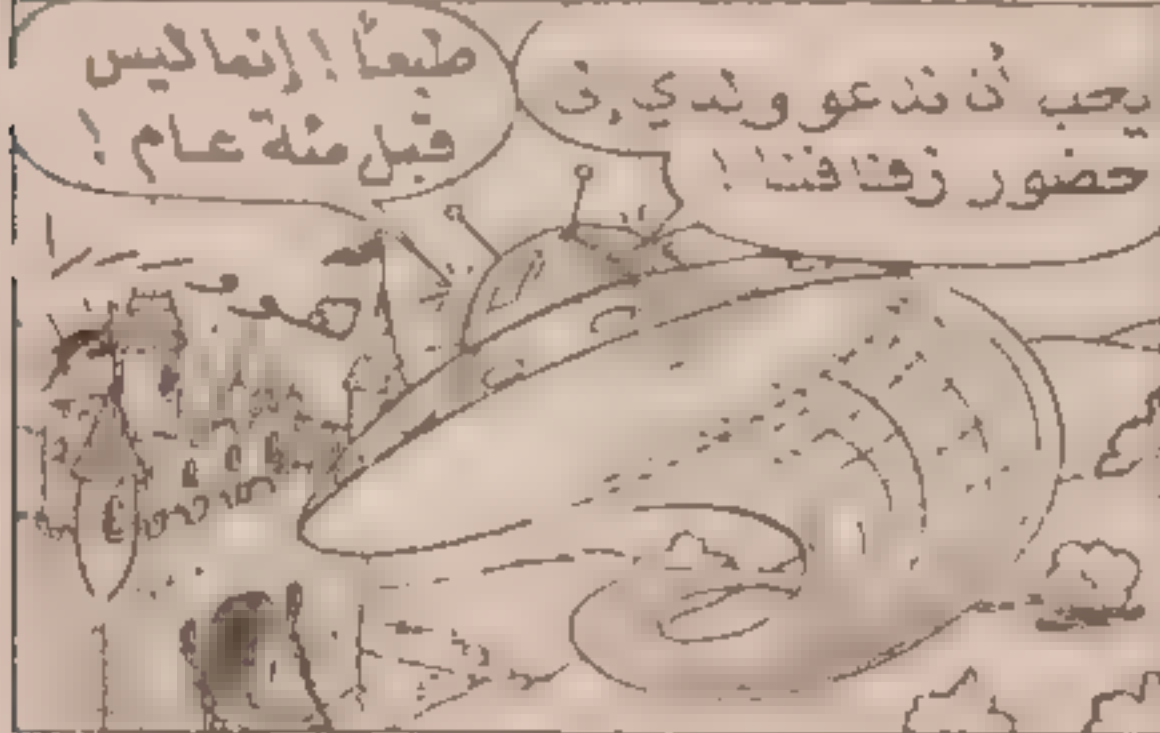 يجب أن ندعو ولدي .ن
حضور زفافنا !
طبعاً ! إنما ليس
قبل مئة عام !